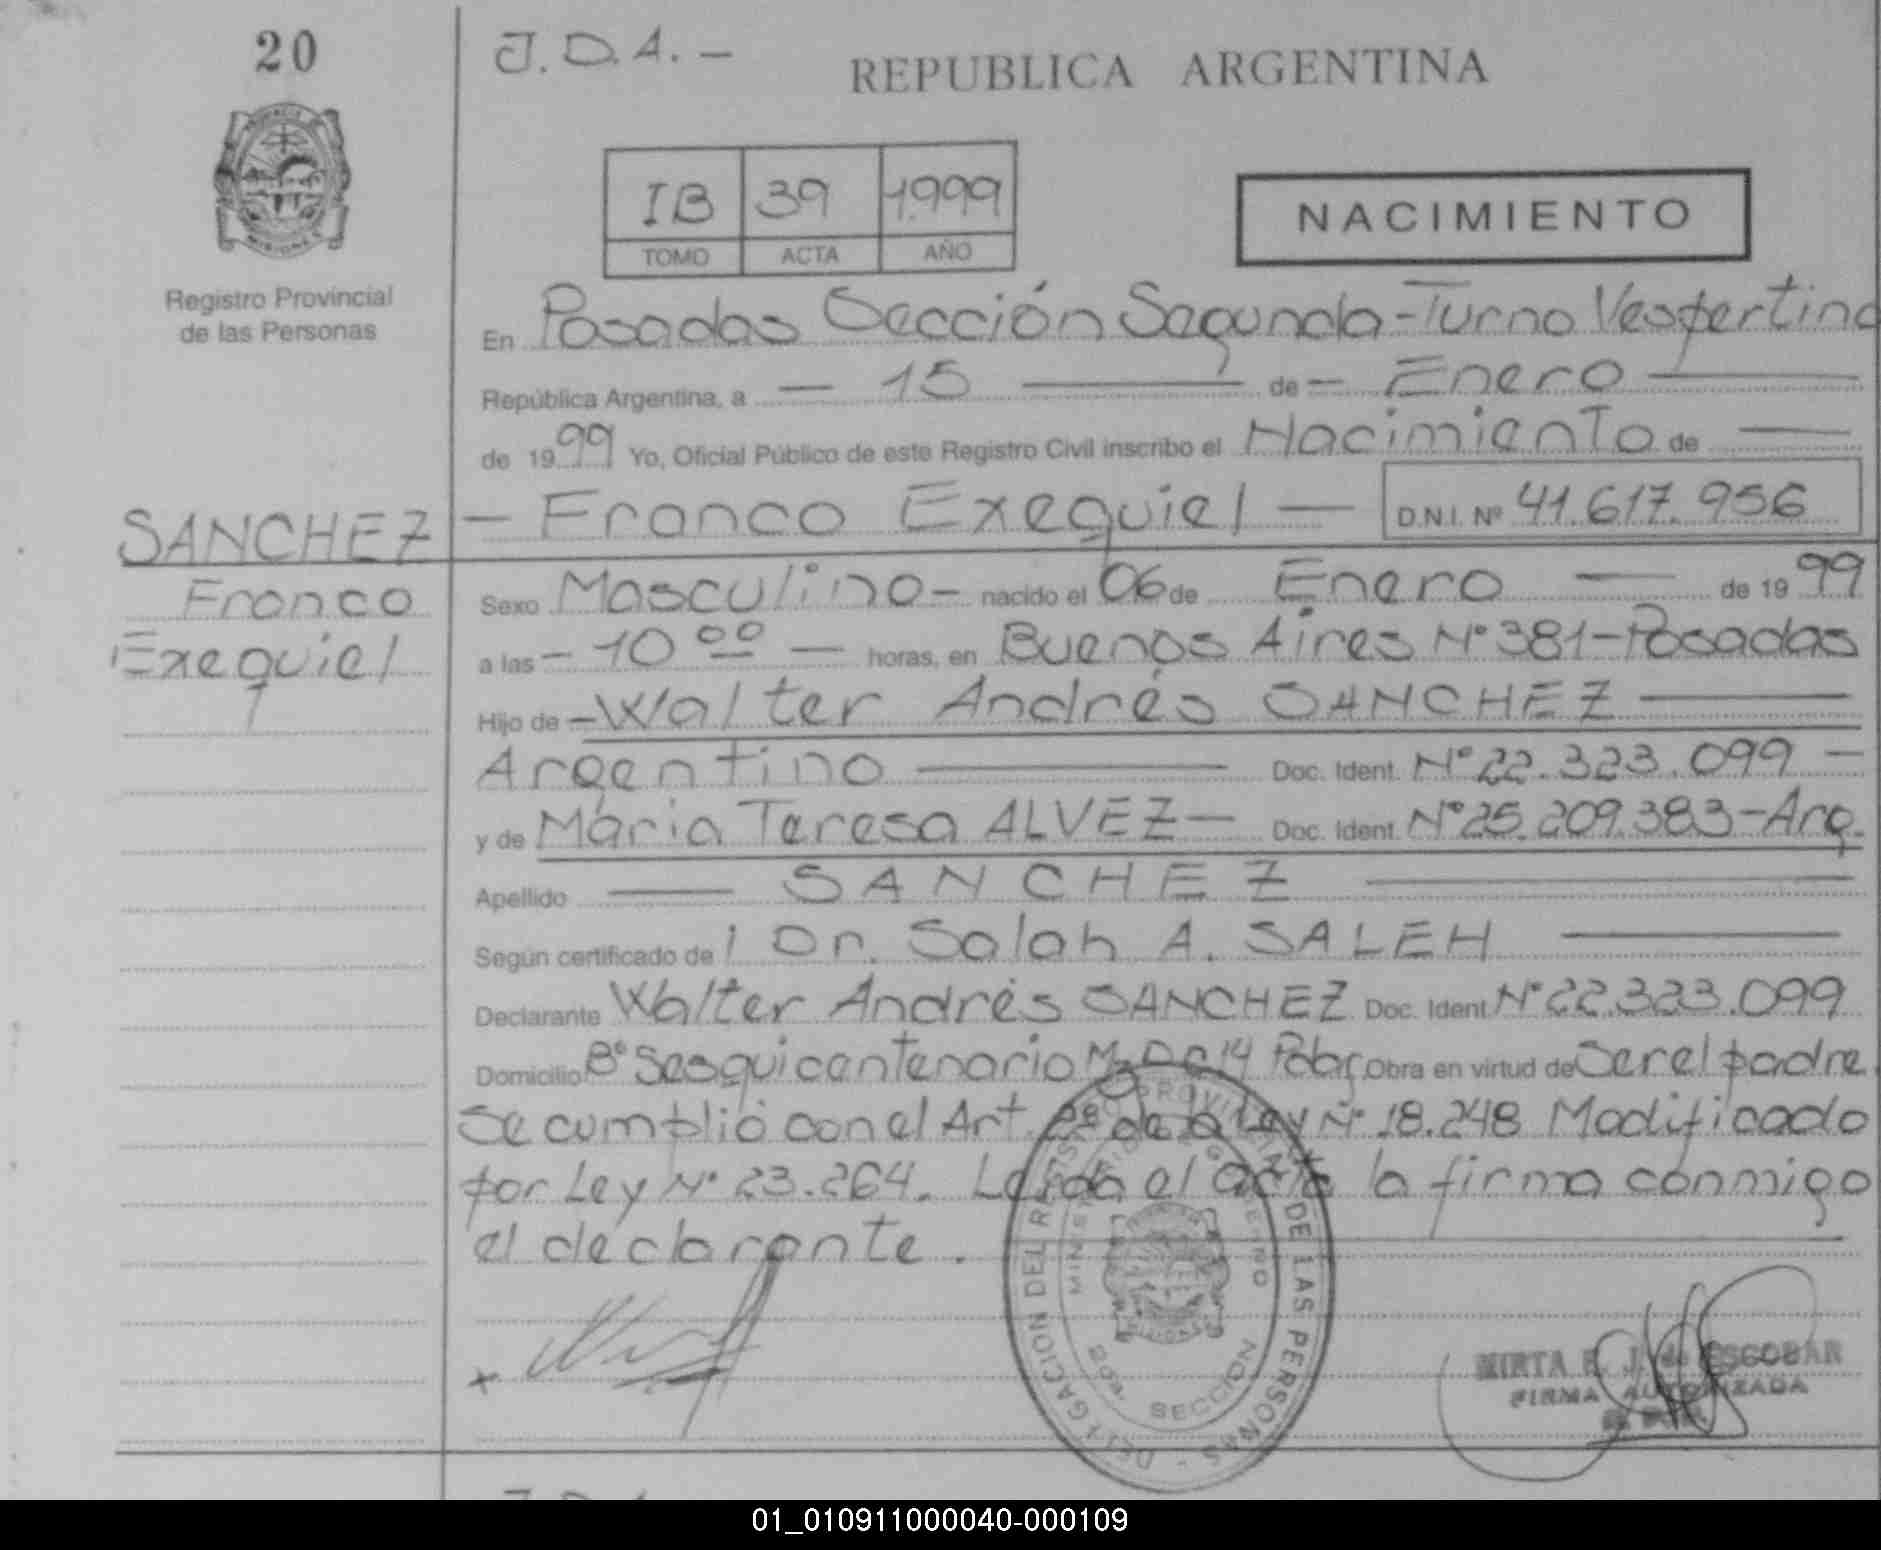 20
J.D.A. -
REPUBLICA ARGENTINA
IB 39 1.999
TOMO ACTA AÑO
NACIMIENTO
Registro Provincial
de las Personas
En Posadas Sección Segunda - Turno Vespertino
República Argentina, a - 15 — de - Enero —
de 19 99 Yo, Oficial Público de este Registro Civil inscribo el Nacimiento de —
SANCHEZ
Franco
Exequiel
- Franco Exequiel — D.N.I. Nº 41.617.956
Sexo Masculino - nacido el 06 de Enero — de 19 99
a las - 10 00 — horas, en Buenos Aires Nº 381 - Posadas
Hijo de - Walter Andrés SANCHEZ —
Argentino — Doc. Ident. Nº 22.323.099 -
y de María Teresa ALVEZ - Doc. Ident. Nº 25.209.383 - Arg.
Apellido — SANCHEZ —
Según certificado de Dr. Salah A. SALEH —
Declarante Walter Andrés SANCHEZ Doc. Ident. Nº 22.323.099
Domicilio Bº Sesquicentenario Obra en virtud de Ser el padre.
Se cumplió con el Art. 2º de la Ley Nº 18.248 Modificado
por Ley Nº 23.264. Leída el acta la firma conmigo
el declarante.
DELEGACION DEL REGISTRO PROVINCIAL DE LAS PERSONAS -
MINISTERIO GOBIERNO
2da. SECCION
MISIONES
MIRTA E. J. de ESCOBAR
FIRMA AUTORIZADA
01_010911000040-000109